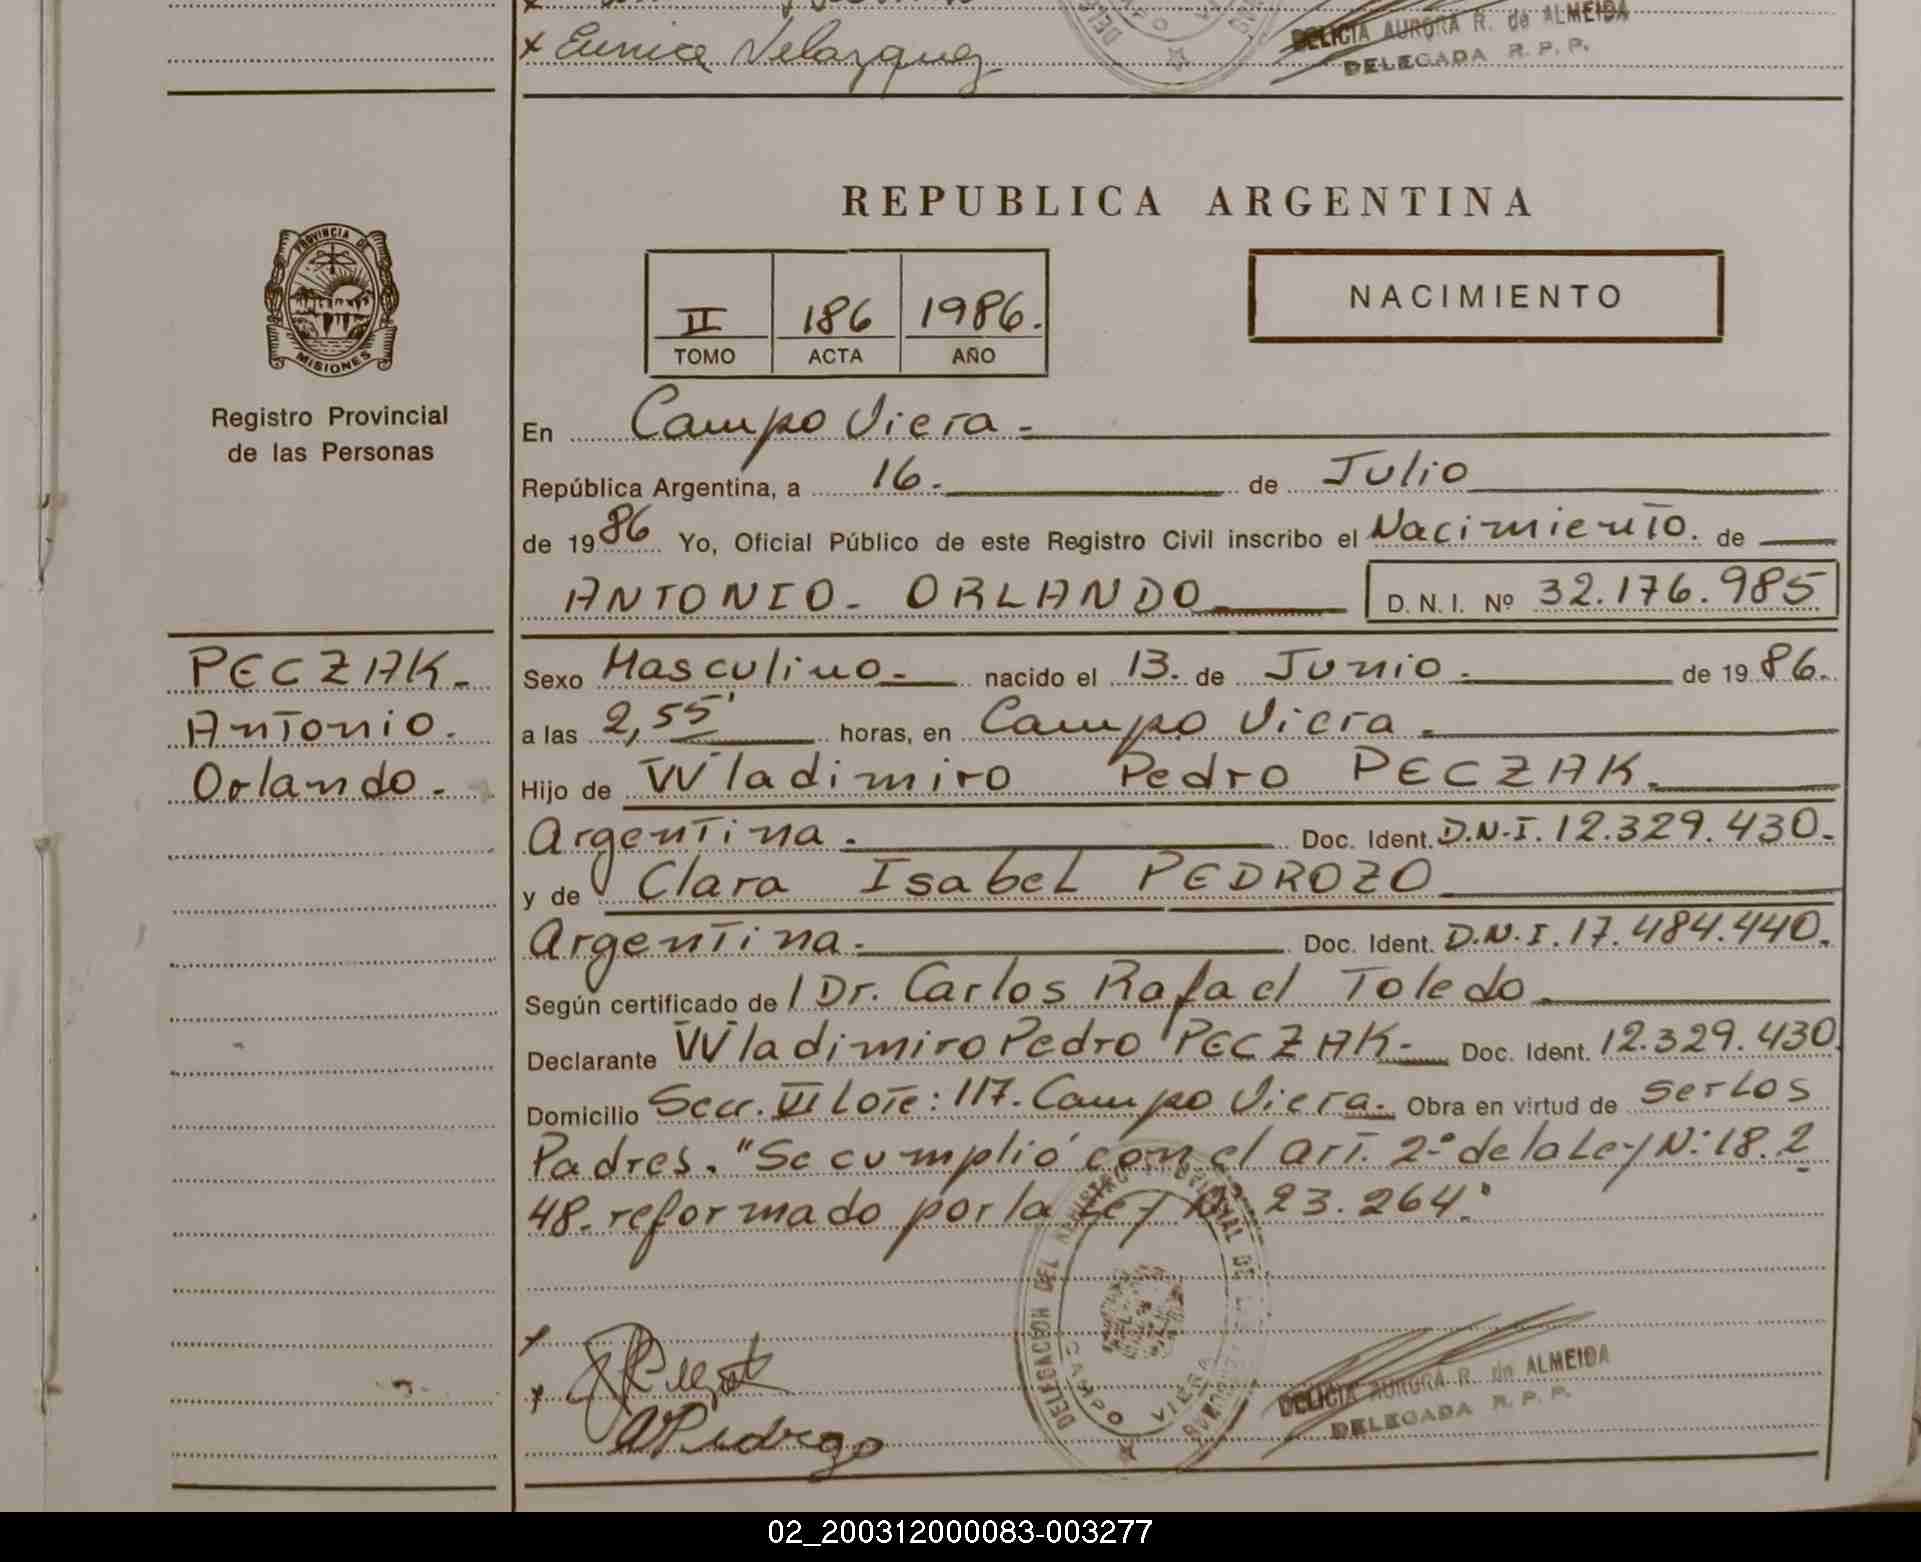 x Eunice Velazquez
DELICIA AURORA R. de ALMEIDA
DELEGADA R. P. P.
REPUBLICA ARGENTINA
PROVINCIA DE
MISIONES
Registro Provincial
de las Personas
II 186 1986.
TOMO ACTA AÑO
NACIMIENTO
En Campo Viera.-
República Argentina, a 16.- de Julio
de 1986 Yo, Oficial Público de este Registro Civil inscribo el Nacimiento. de
ANTONIO- ORLANDO D. N. I. Nº 32.176.985
PECZAK.-
Antonio.
Orlando.-
Sexo Masculino.- nacido el 13. de Junio.- de 1986.
a las 2,55' horas, en Campo Viera.-
Hijo de Wladimiro Pedro PECZAK.-
Argentina.- Doc. Ident. D.N.I. 12.329.430.-
y de Clara Isabel PEDROZO
Argentina.- Doc. Ident. D.N.I. 17.484.440.
Según certificado de / Dr. Carlos Rafael Toledo.-
Declarante Wladimiro Pedro PECZAK.- Doc. Ident. 12.329.430.
Domicilio Secc. VI Lote: 117. Campo Viera.- Obra en virtud de ser Los
Padres. "Se cumplió con el art. 2º de la Ley N: 18.2
48. reformado por la Ley Nº 23.264."
DELEGACION DEL REGISTRO PROVINCIAL DE
CAMPO VIERA
DELICIA AURORA R. de ALMEIDA
DELEGADA R. P. P.
x
x
Pedrozo
02_200312000083-003277